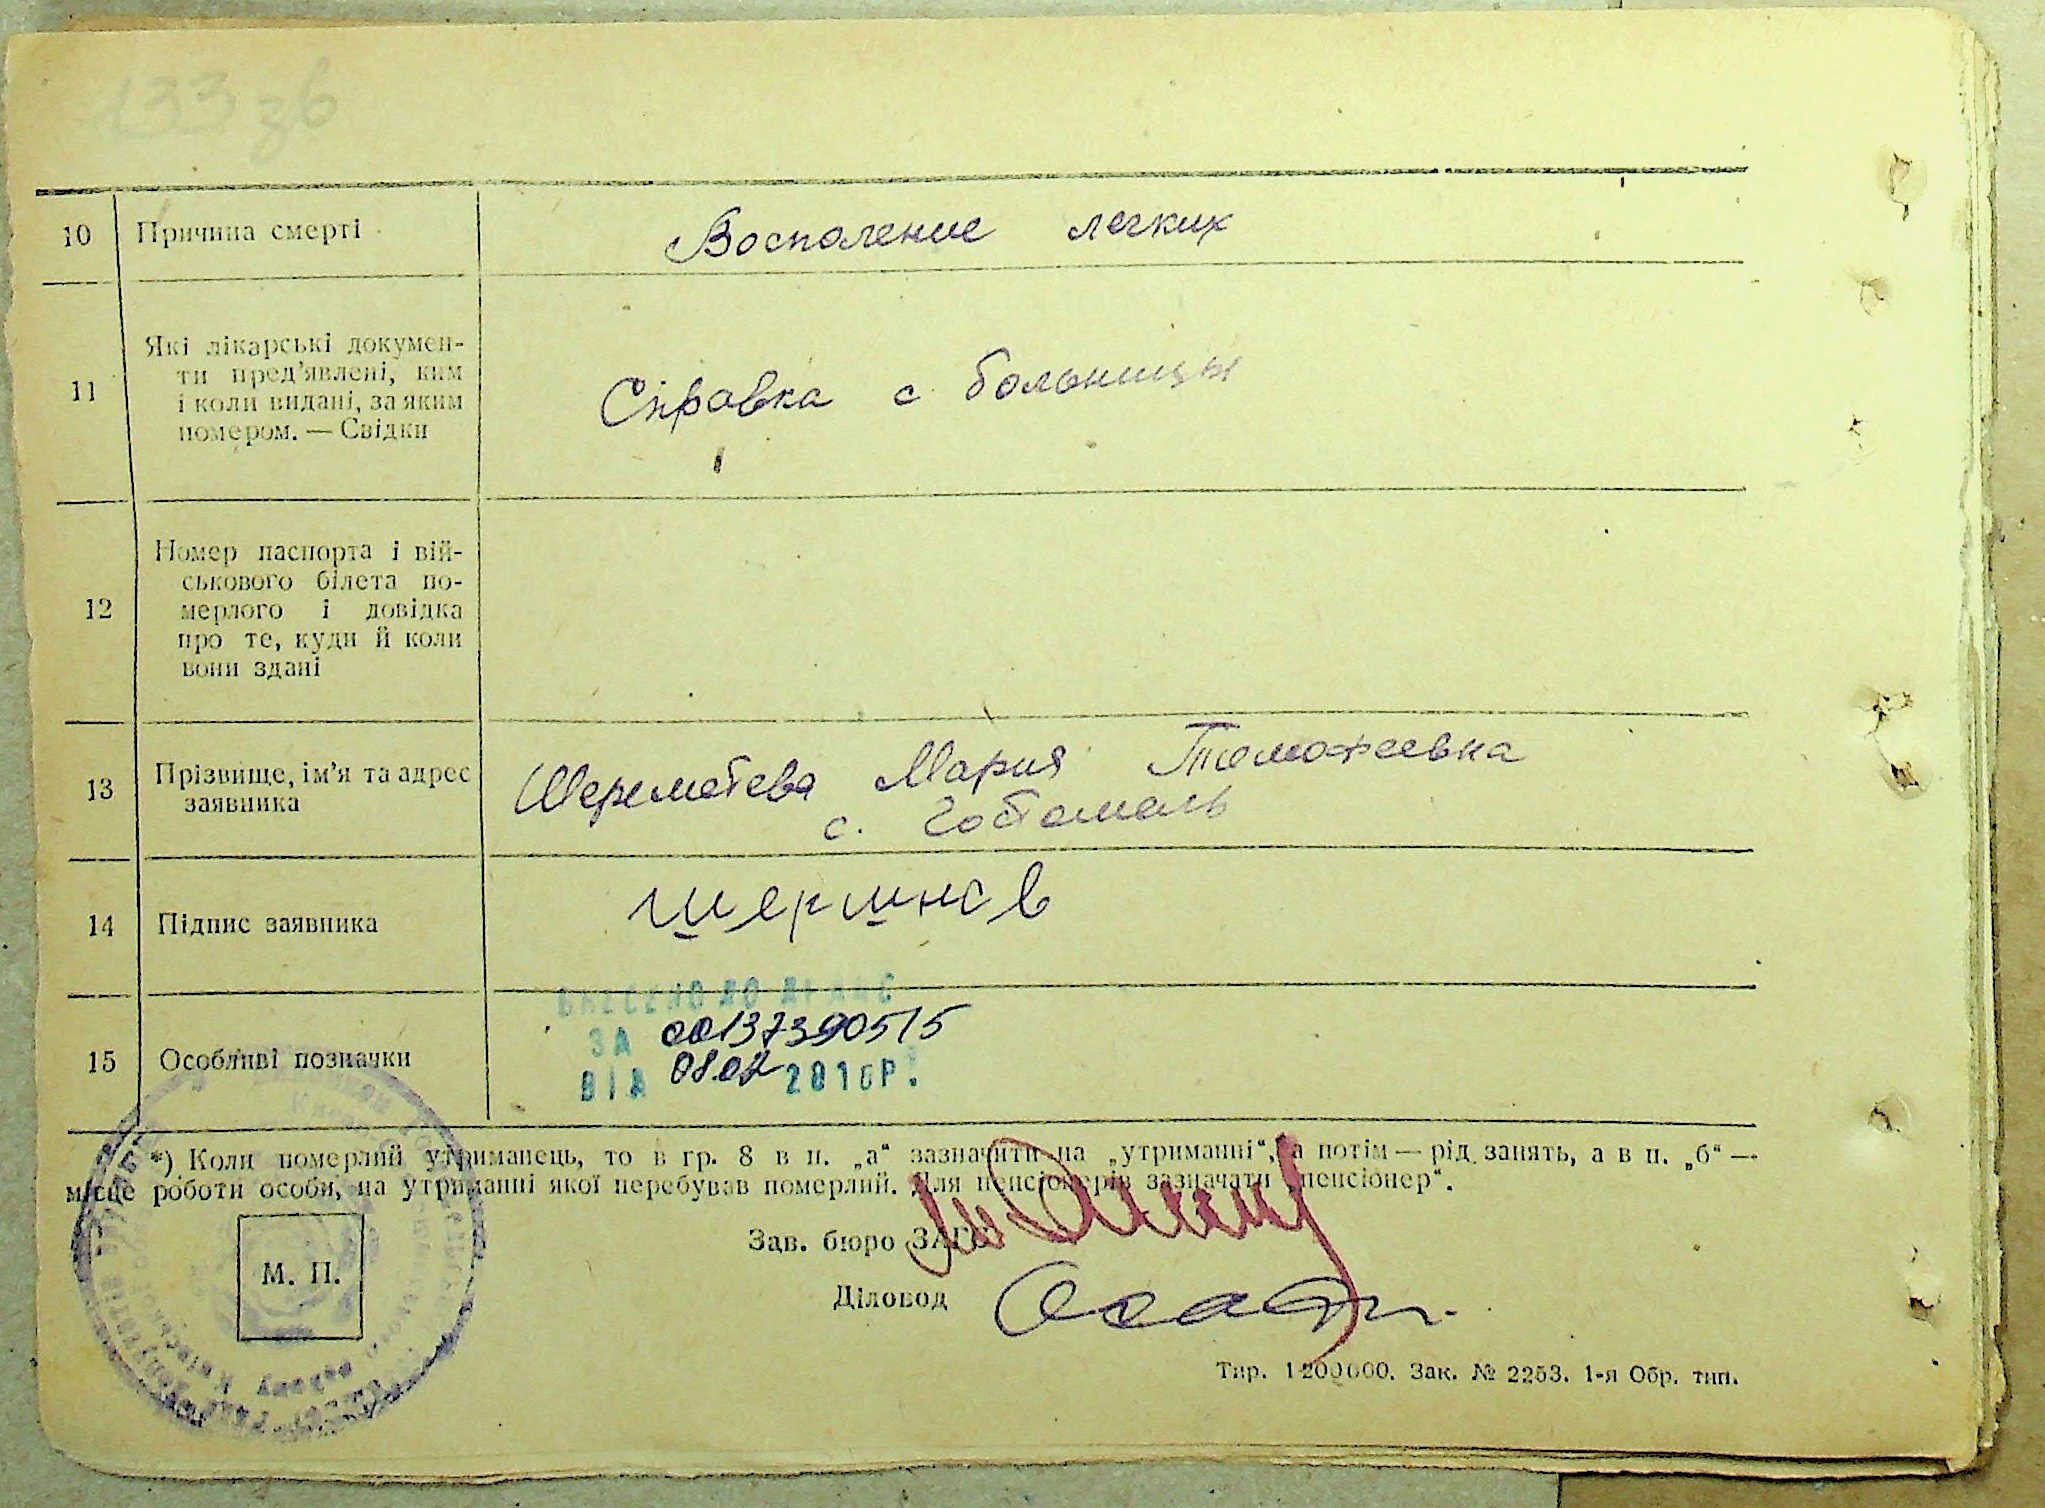 133 зв
10 Причина смерті Восполение легких
11 Які лікарські докумен-
ти пред'явлені, ким
і коли видані, за яким
номером. — Свідки
Справка с больницы
12 Номер паспорта і вій-
ськового білета по-
мерлого і довідка
про те, куди й коли
вони здані
13 Прізвище, ім'я та адрес
заявника
Шереметева Мария Тимофеевна
с. Гостомель
14 Підпис заявника
ВНЕСЕНО ДО ДРАЦС
ЗА 00137390515
ВІД 08.02 2016Р.
15 Особливі позначки
*) Коли померлий утриманець, то в гр. 8 в п. „а“ зазначити на „утриманні“, а потім — рід занять, а в п. „б“ —
місце роботи особи, на утриманні якої перебував померлий. Для пенсіонерів зазначати „пенсіонер“.
Зав. бюро ЗАГС
М. П.
Діловод
Тир. 1200000. Зак. № 2253. 1-я Обр. тип.